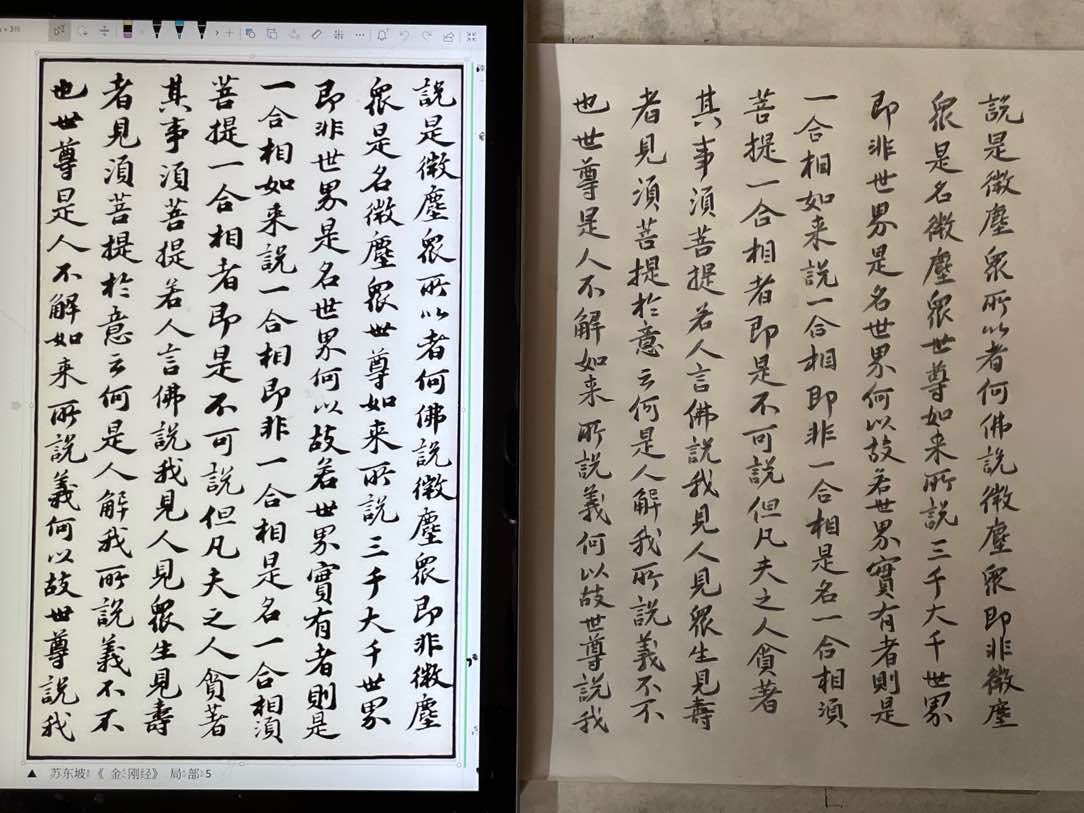 說是微塵眾所以者何佛說微塵眾即非微塵
眾是名微塵眾世尊如来所說三千大千世界
即非世界是名世界何以故若世界實有者則是
一合相如来說一合相即非一合相是名一合相須
菩提一合相者即是不可說但凡夫之人貪著
其事須菩提若人言佛說我見人見眾生見壽
者見須菩提於意云何是人解我所說義不不
也世尊是人不解如来所說義何以故世尊說我
▲ 苏东坡《金刚经》 局部5
說是微塵眾所以者何佛說微塵眾即非微塵
眾是名微塵眾世尊如来所說三千大千世界
即非世界是名世界何以故若世界實有者則是
一合相如来說一合相即非一合相是名一合相須
菩提一合相者即是不可說但凡夫之人貪著
其事須菩提若人言佛說我見人見眾生見壽
者見須菩提於意云何是人解我所說義不不
也世尊是人不解如来所說義何以故世尊說我